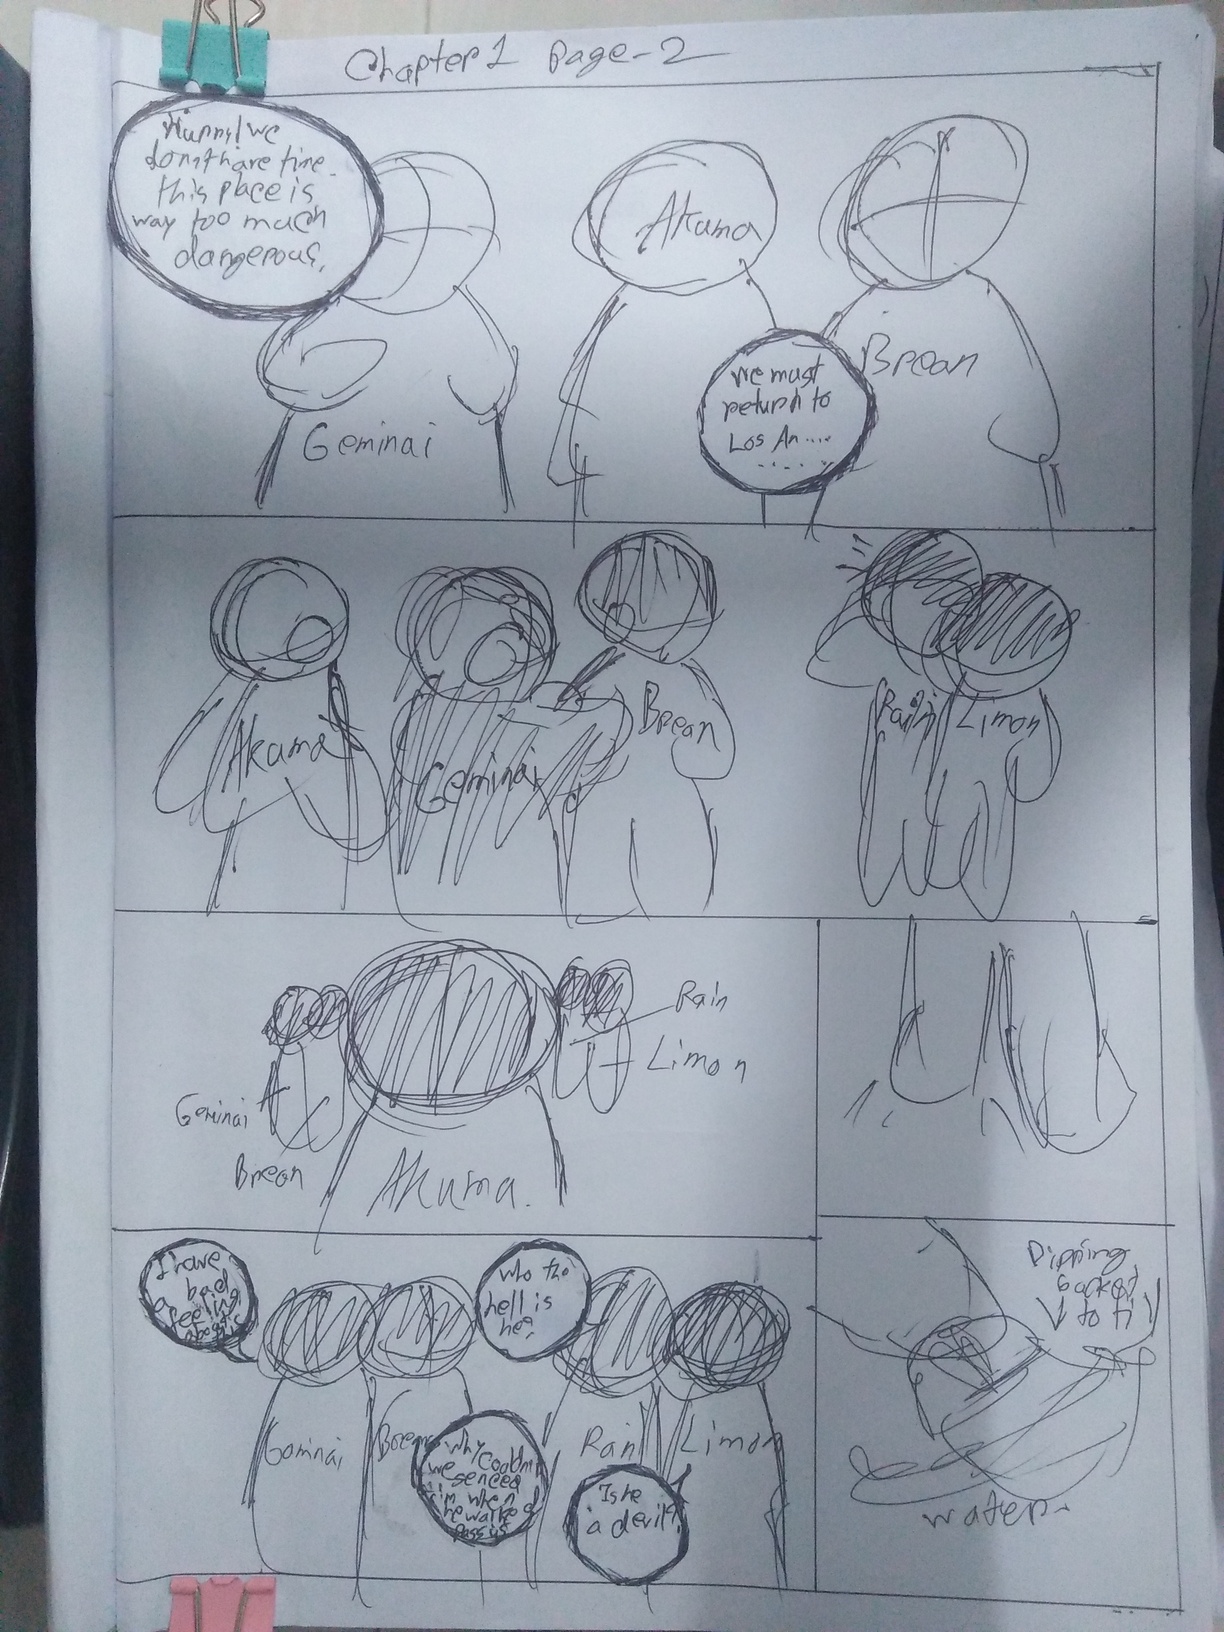 Chapter 1 Page-2
Hurry! we
don't have time.
this place is
way too much
dangerous.
Akuma
Brean
we must
return to
Los An....
Geminai
Akuma
Geminai
Brean
Rain
Limon
Rain
Limon
Geminai
Brean
Akuma.
I have
bad
feeling
who the
hell is
he?
Geminai
Rain
Limon
why
we
him when
he walked
pass us
Is he
a devil?
Dipping
to
water